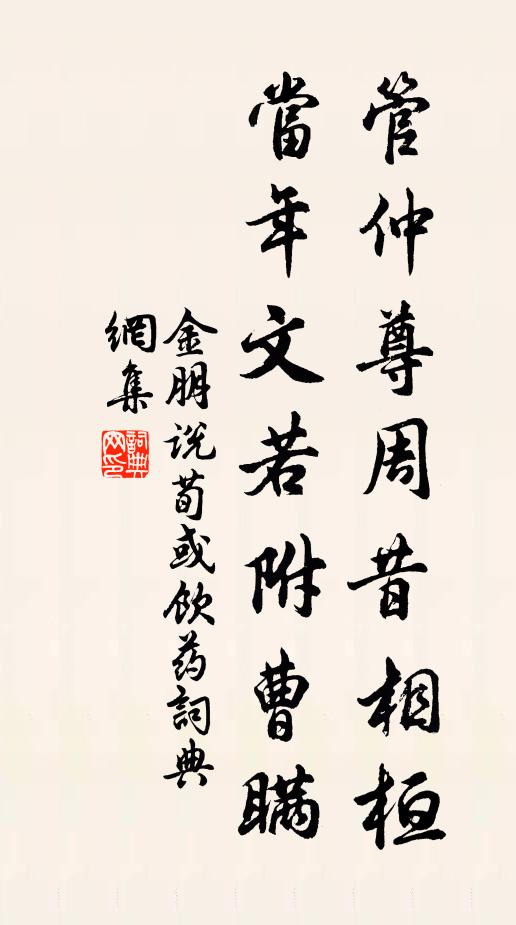 管仲尊周昔相桓
當年文若附曹瞞
金朋说荀或飲药詞典
網集
詞典
网印